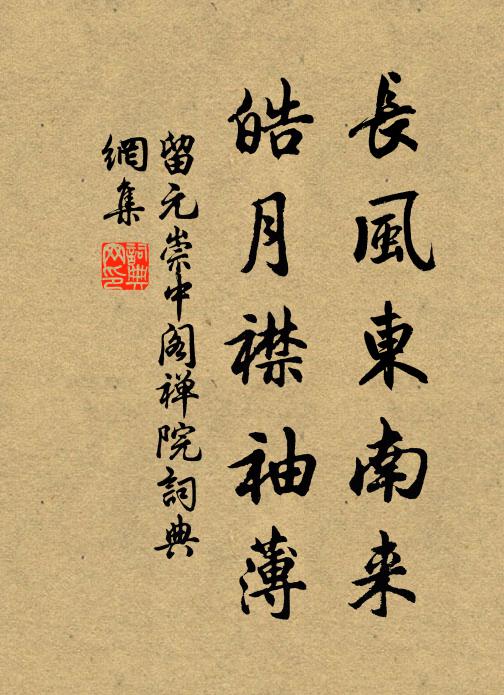 長風東南来
皓月襟袖薄
留元崇中阁禅院詞典
網集
詞典
网印